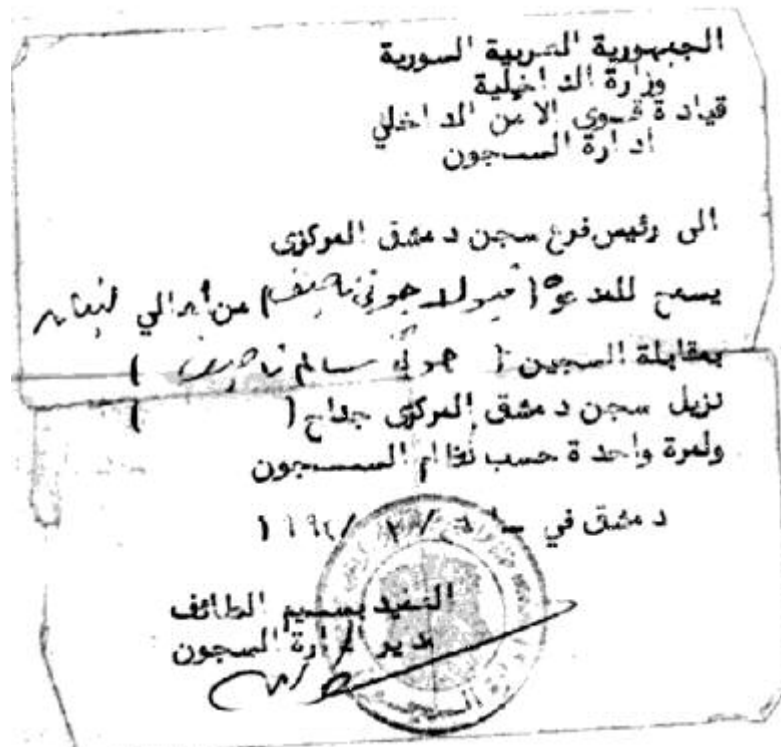 الجمهورية العربية السورية
وزارة الداخلية
قيادة قوى الامن الداخلي
ادارة السجون
الى رئيس فرع سجن دمشق المركزي
يسمح للمدعوة ( جوني ناصيف ) من أهالي لبنان
بمقابلة السجين ( جوني سالم ناصيف )
نزيل سجن دمشق المركزي جناح ( )
ولمرة واحدة حسب نظام السجون
دمشق في
العقيد بسيم الطائف
مدير ادارة السجون